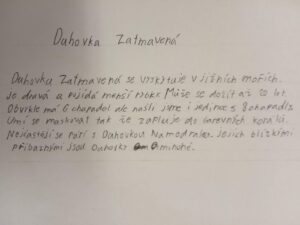 Duhovka Zatmavená
Duhovka Zatmavená se vyskytuje v jižních mořích.
Je dravá a pojídá menší Může se dožít až 20 let
Obvykle má 6 chapadel ale našli jsme i jedince s 8 chapadly
Umí se maskovat tak že zapluje do barevných korálů.
Nejčastěji se páří s Duhovkou Namodralou. Jejich blízkými
příbuznými jsou Duhovky